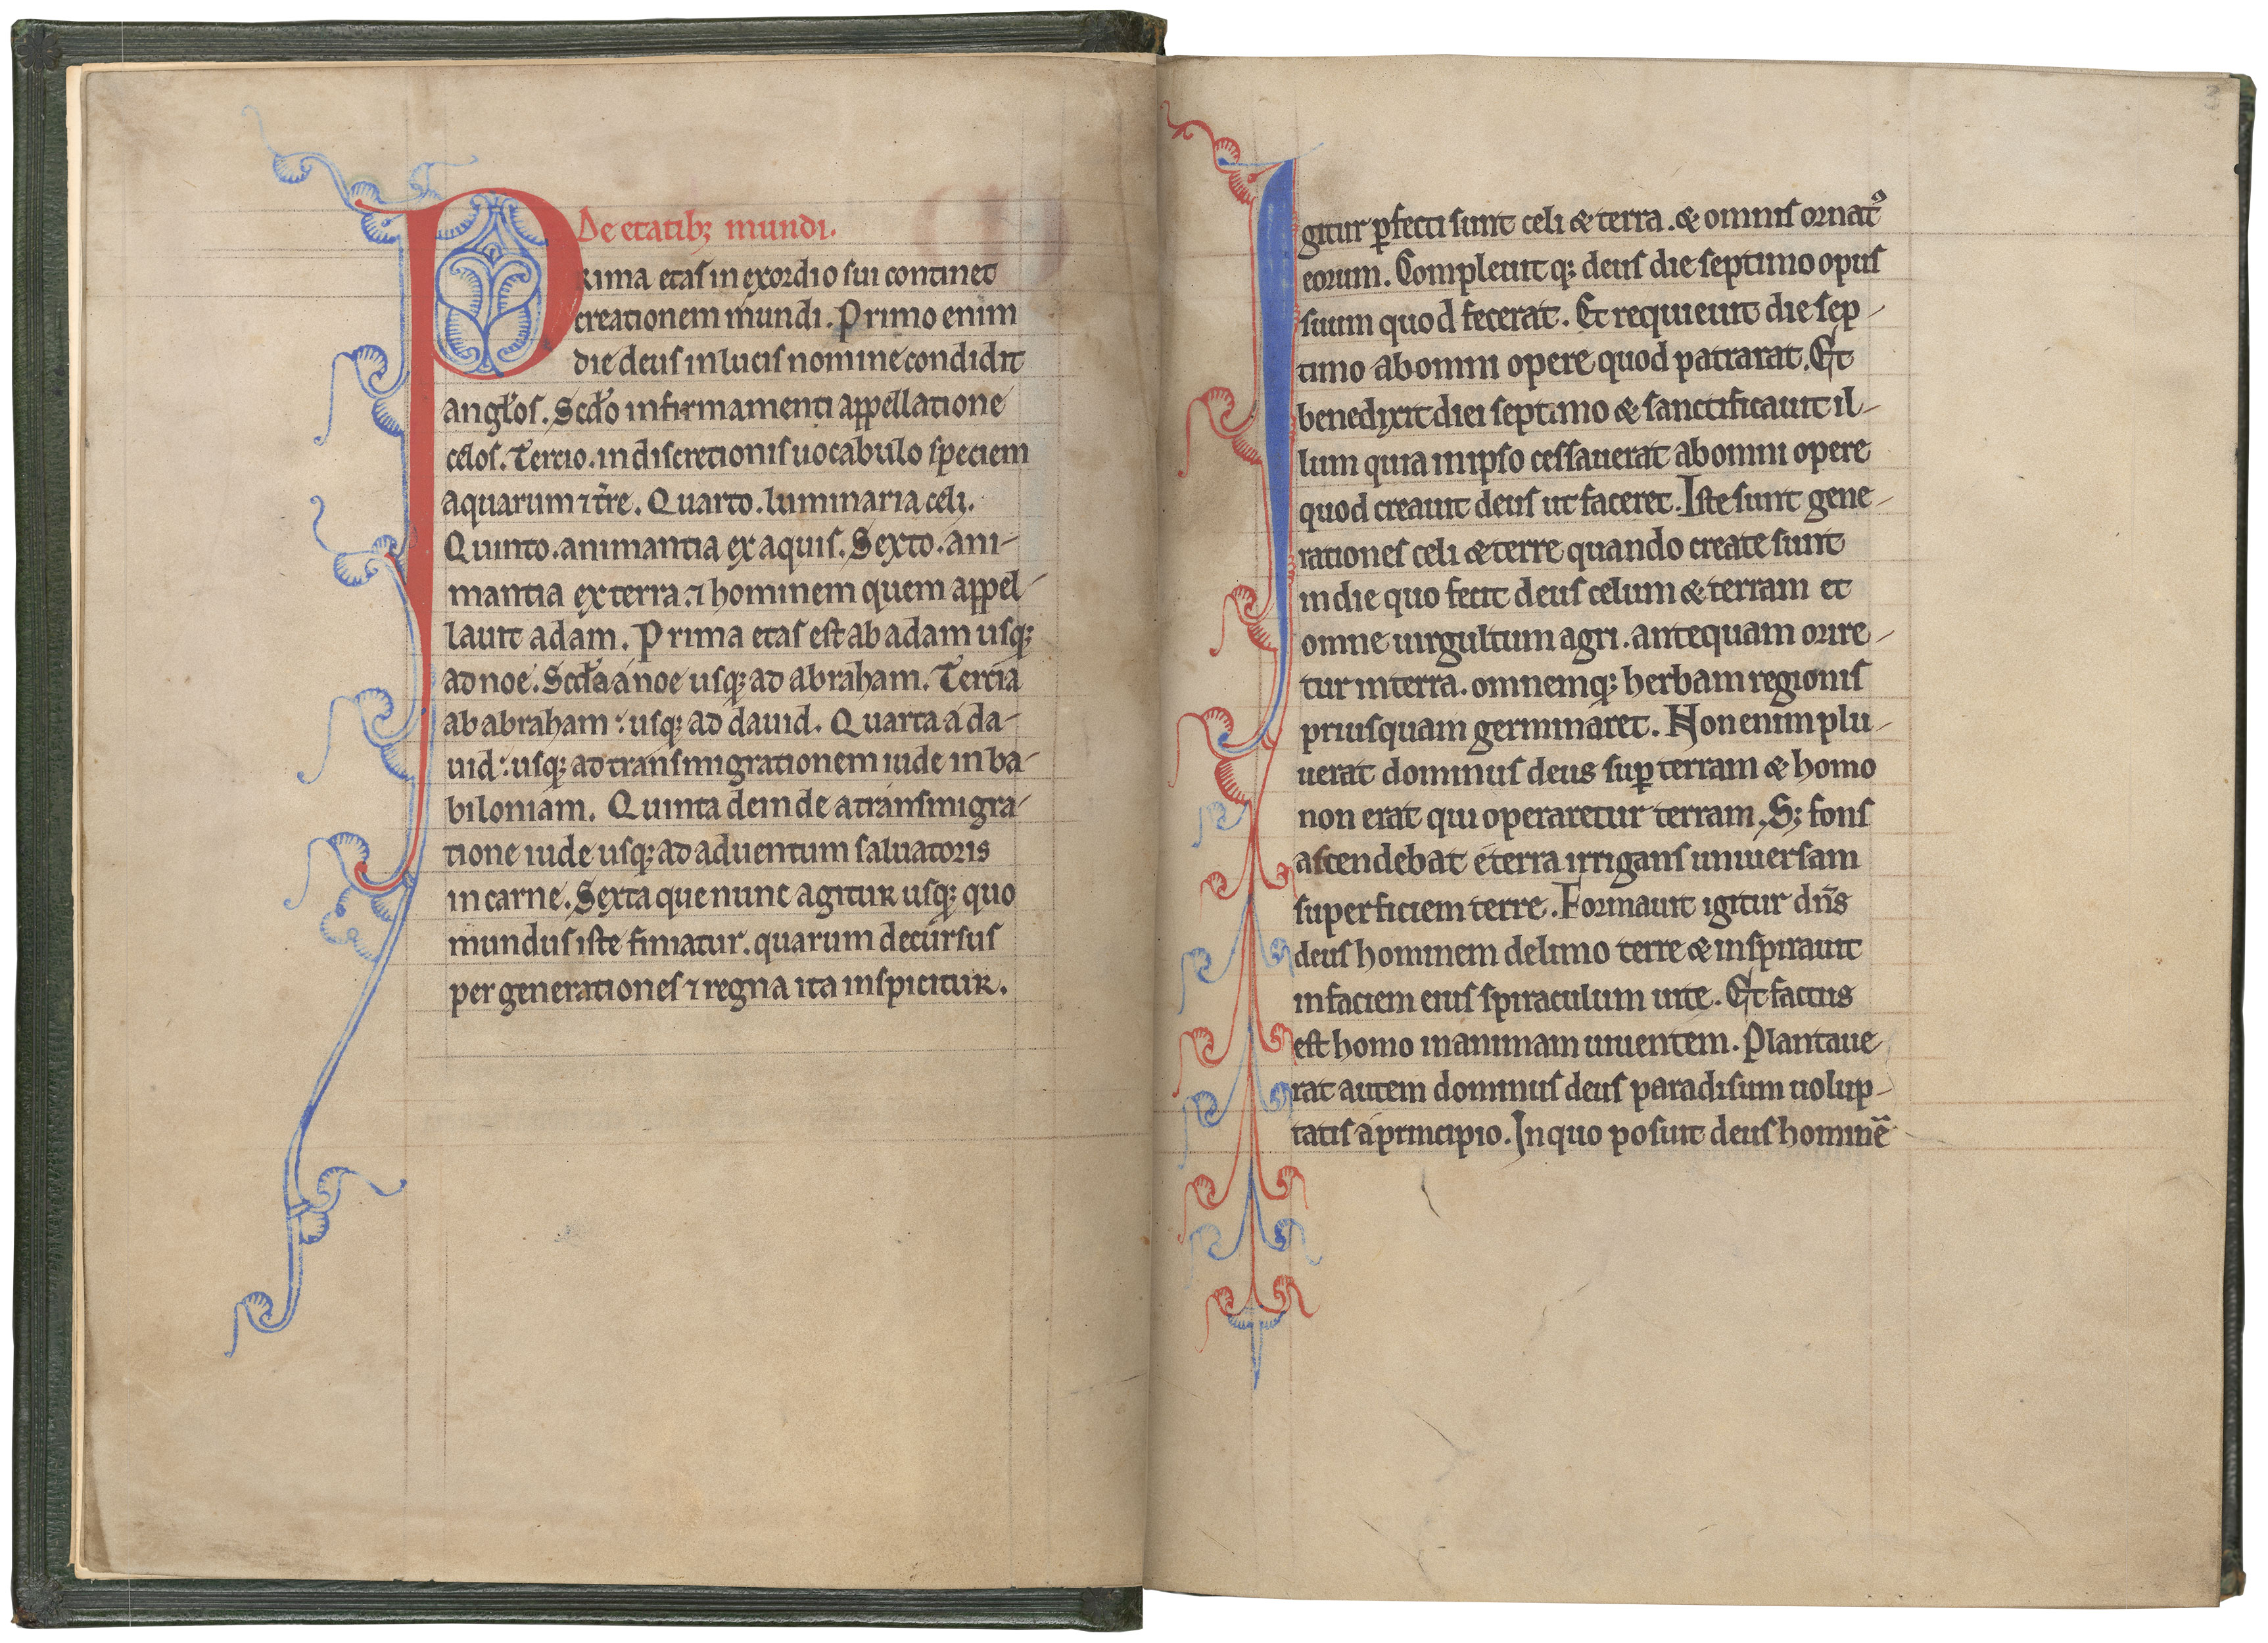 De etatibꝫ mundi.
Prima etas in exordio sui continet
creationem mundi. Primo enim
die deus in lucis nomine condidit
angl'os. Scd'o in firmamenti appellatione
celos. Tercio. in discretionis uocabulo speciem
aquarum ⁊ t̄re. Quarto. luminaria celi.
Quinto. animantia ex aquis. Sexto. ani-
mantia ex terra. ⁊ hominem quem appel-
lauit adam. Prima etas est ab adam usqꝫ
ad noe. Scd'a a noe usqꝫ ad abraham. Tercia
ab abraham: usqꝫ ad dauid. Quarta a da-
uid: usqꝫ ad transmigrationem iude in ba-
biloniam. Quinta deinde a transmigra-
tione iude usqꝫ ad aduentum saluatoris
in carne. Sexta que nunc agitur usqꝫ quo
mundus iste finiatur. quarum decursus
per generationes ⁊ regna ita inspicitur.
3
Igitur ꝑfecti sunt celi & terra. & omnis ornatꝰ
eorum. Compleuit qꝫ deus die septimo opus
suum quod fecerat. Et requieuit die sep-
timo ab omni opere quod patrarat. Et
benedixit diei septimo & sanctificauit il-
lum quia in ipso cessauerat ab omni opere
quod creauit deus ut faceret. Iste sunt gene-
rationes celi & terre quando create sunt
in die quo fecit deus celum & terram et
omne uirgultum agri. antequam orire-
tur in terra. omnemqꝫ herbam regionis
priusquam germinaret. Non enim plu-
uerat dominus deus suꝑ terram & homo
non erat qui operaretur terram. Sꝫ fons
ascendebat e terra irrigans uniuersam
superficiem terre. Formauit igitur dn̄s
deus hominem de limo terre & inspirauit
in faciem eius spiraculum uite. Et factus
est homo in animam uiuentem. Plantaue
rat autem dominus deus paradisum uolup-
tatis a principio. In quo posuit deus hominē